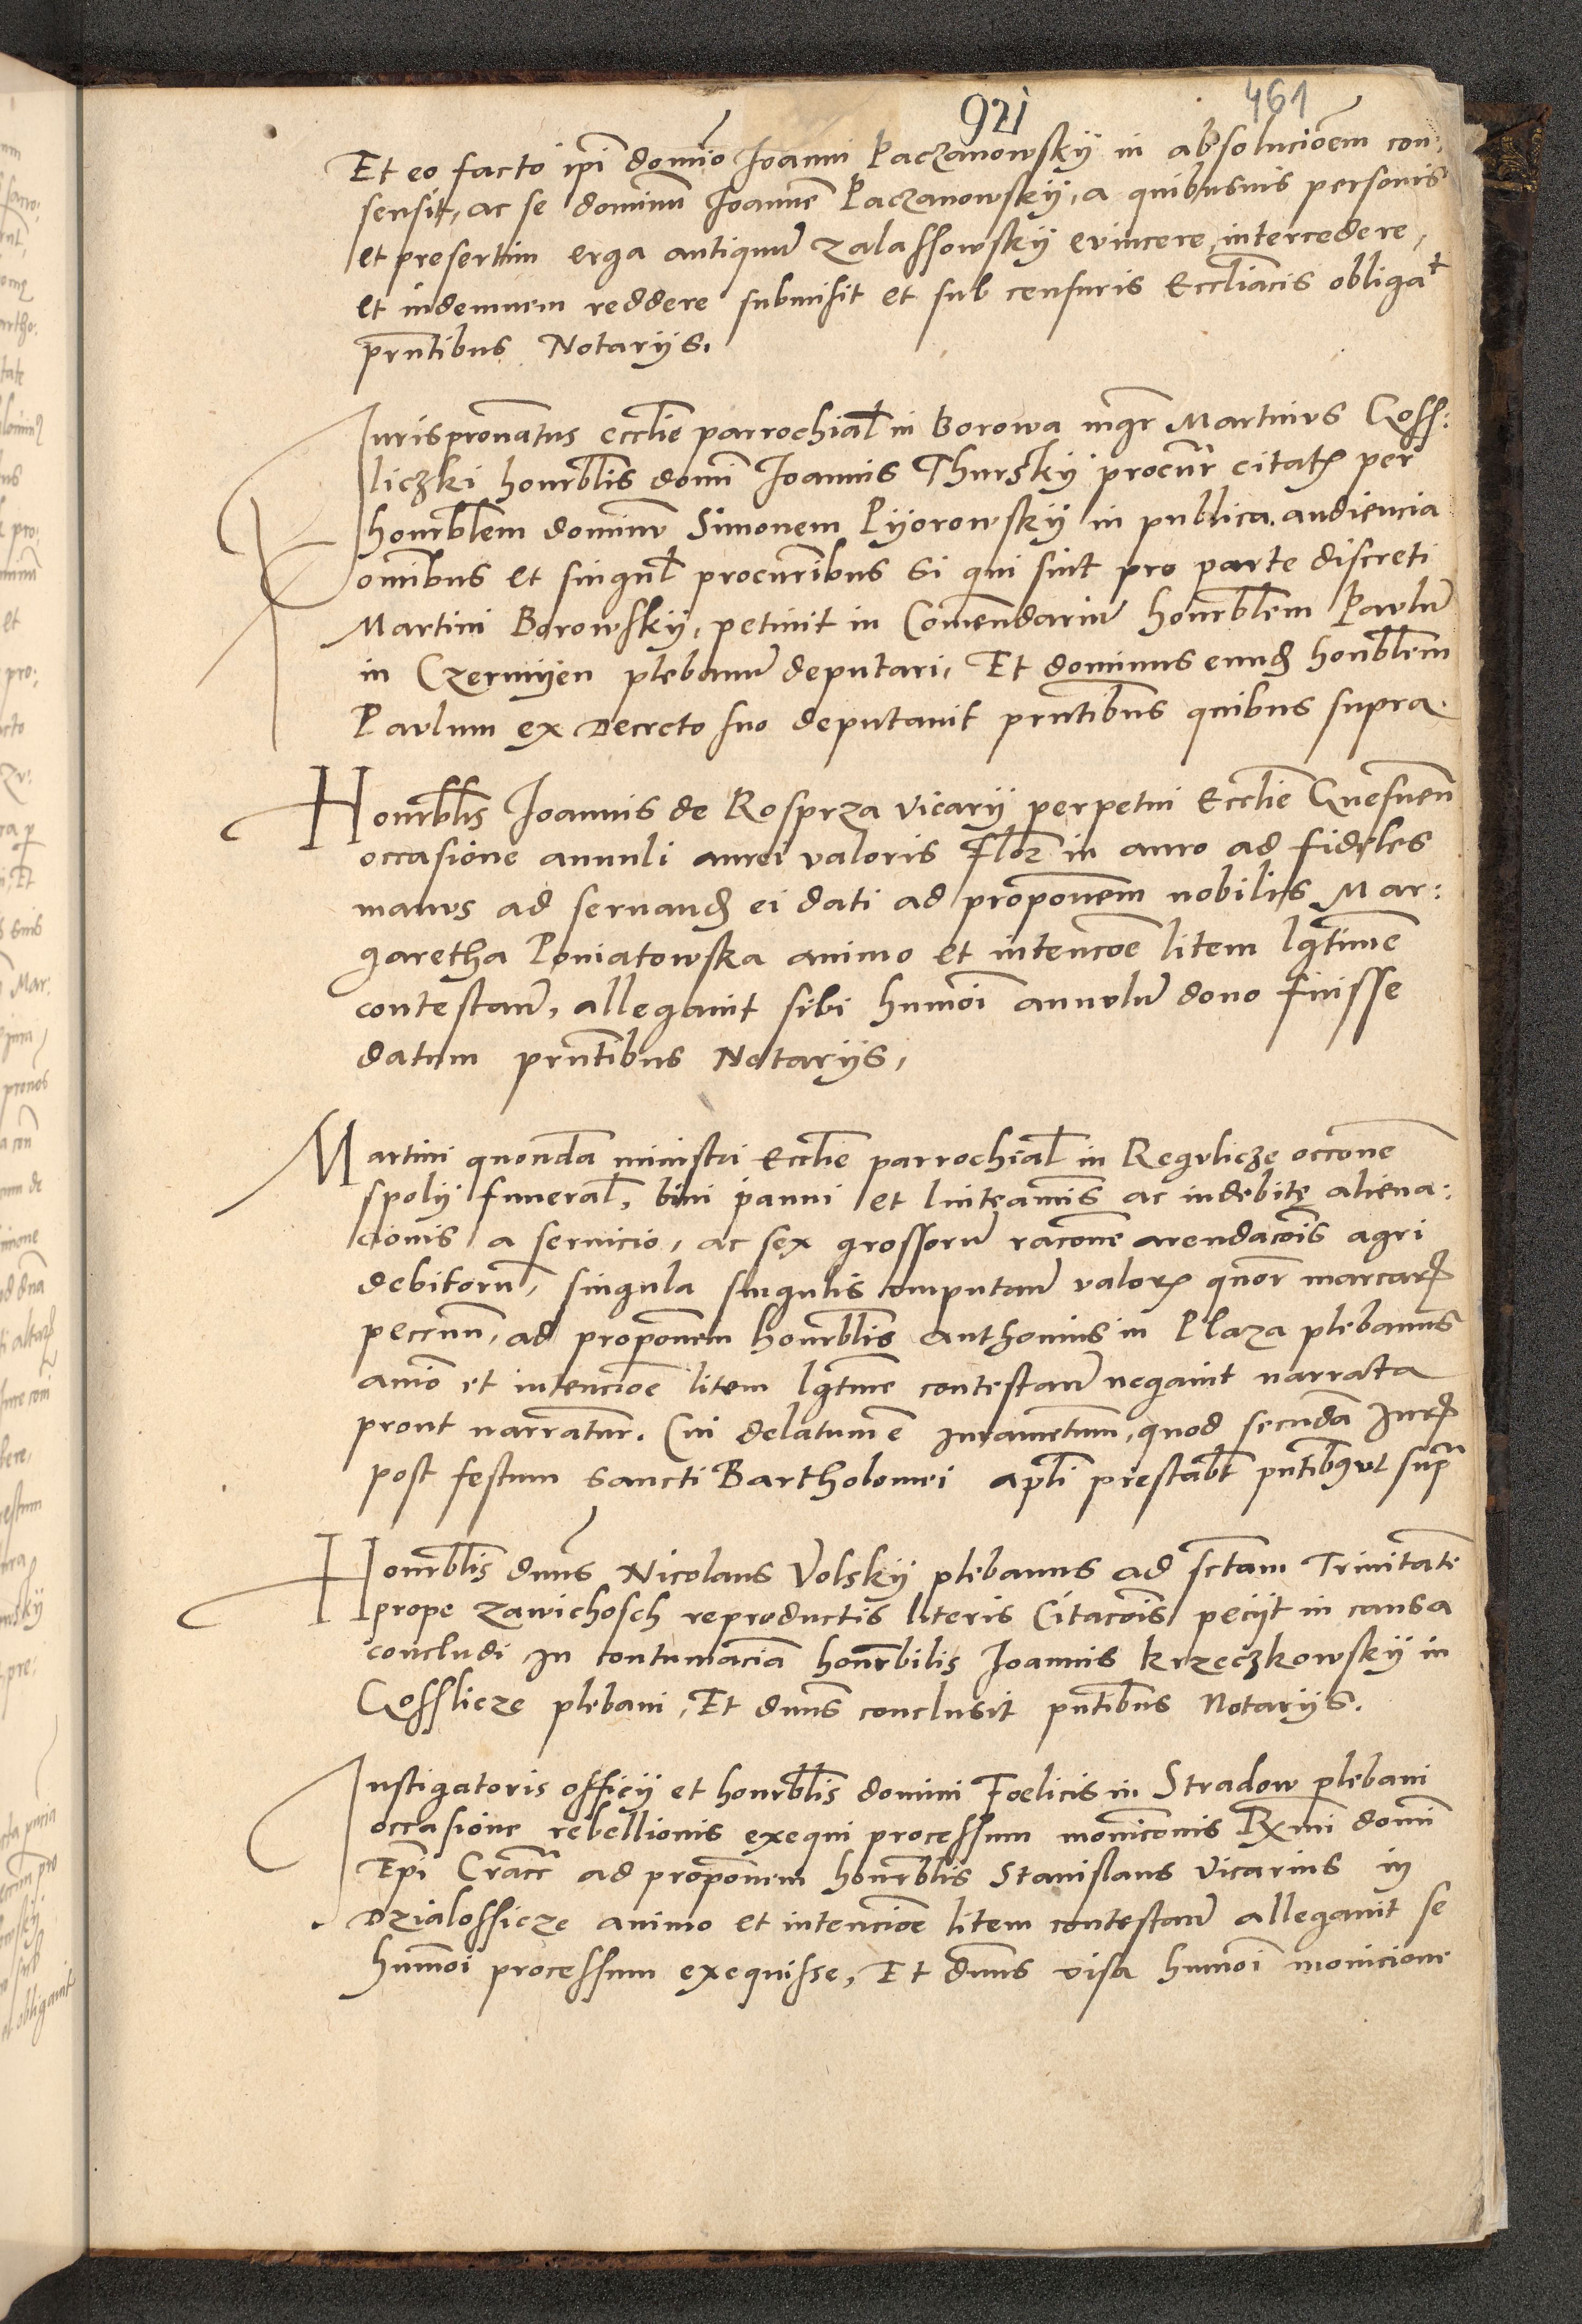 921
461
Et eo facto ip̃i dom̃io Joanni Paczanowsky in absolucioẽm con-
sensit, ac se dominũ Joannẽ Paczanowsky, a quibusuis personis
et presertim erga antiquũ Zalassowsky evincere, intercedere,
et indemnem reddere submisit et sub censuris Eccl̃iacis obligat
prñtibus Notarijs.
Jurispronatus eccl̃ie parrochial̃ in Borowa mgr̃ Martinus Goss:
liczki honrbl̃is domĩ Joannis Thursky procur̃ citatꝭ per
honrbl̃em dominũ Simonem Pyorowsky in publica audiencia
om̃ibus et singul̃ procur̃ibus si qui sint pro parte discreti
Martini Borowsky, petiuit in Comendariũ honrbl̃em Paulũ
in Czermyen plebanũ deputari, Et dominus eundꝭ honbl̃em
Paulum ex Decreto suo deputauit prñtibus quibus supra.
Honrbl̃is Joannis de Rosprza vicarij perpetui Eccl̃ie Gnesneñ
occasione annuli aurei valoris flor̃ in auro ad fideles
manus ad seruandꝭ ei dati ad propõnem nobilis Mar:
garetha Poniatowska animo et intencõe litem lg̃time
contestañ, allegauit sibi humõi annulũ dono fuisse
datum prñtibus Notarijs,
Martini quondã ministri Eccl̃ie parrochial̃ in Regulicze occõne
spolij funeral̃, bini panni et linteamĩs ac indebite aliena:
cionis a seruicio, ac sex grossorũ racõne arendacõis agri
debitorũ, singula singulis computañ valorꝭ quor̃ marcarꝭ
peccuñ, ad propõnem honrbl̃is Anthonius in Plaza plebanus
anĩo et intencioẽ litem lg̃time contestañ negauit narrata
prout narrãtur. Cui delatum ẽ Juramẽtum, quod secũda Jurꝭ
post festum sancti Bartholomei apl̃i prestabt pñtibꝰ vt supᵃ
Honrbl̃is dñus Nicolaus Volsky plebanus ad sctam Trinitatẽ
prope Zawichosch reproductis literis Citacõis pecijt in causa
concludi in contumaciã honrbilis Joannis Krzeczkowsky in
Gosslicze plebani, Et dñus conclusit pñtibus Notarijs.
Instigatoris officij et honrbl̃is domini Foelicis in Stradow plebani
occasione rebellionis exequi processum monicõnis Rx̃mi domĩ
Ep̃i Cracc̃ ad propõnem honrblis Stanislaus vicarius in
Dzialossicze animo et intencioẽ litem contestañ allegauit se
humõi processum exequisse, Et dñus visa humõi monicione